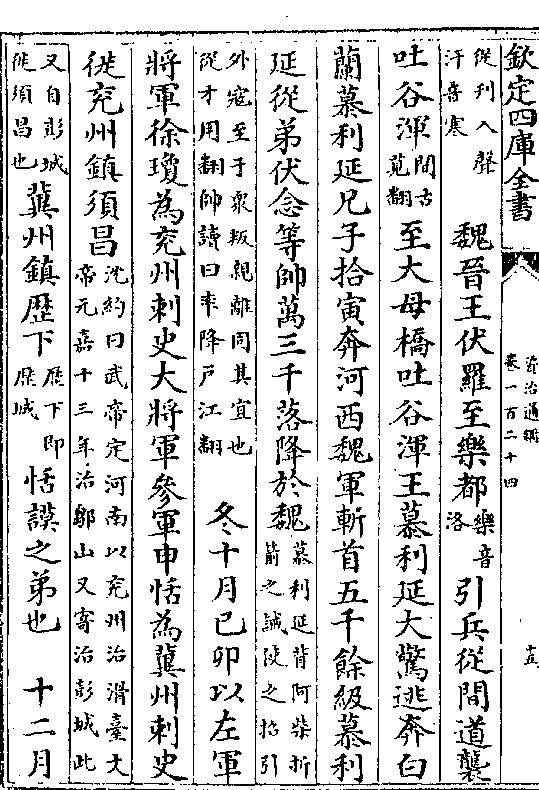 欽定四庫全書
資治通鑑
卷一百二十四
十五
從刋入聲
汗音寒
魏晉王伏羅至樂都
樂音
洛
引兵從間道襲
吐谷渾
間古
莧翻
至大母橋吐谷渾王慕利延大驚逃奔白
蘭慕利延兄子拾寅奔河西魏軍斬首五千餘級慕利
延從弟伏念等帥萬三千落降於魏
慕利延背阿柴折
箭之誡使之招引
外寇至于衆叛親離同其宜也
從才用翻帥讀曰率降戶江翻
冬十月己卯以左軍
將軍徐瓊為兖州刺史大將軍參軍申恬為冀州刺史
徙兖州鎮須昌
沈約曰武帝定河南以兖州治滑臺文
帝元嘉十三年治鄒山又寄治彭城此
又自彭城
徙須昌也
冀州鎮歷下
歷下即
歷城
恬謨之弟也
十二月